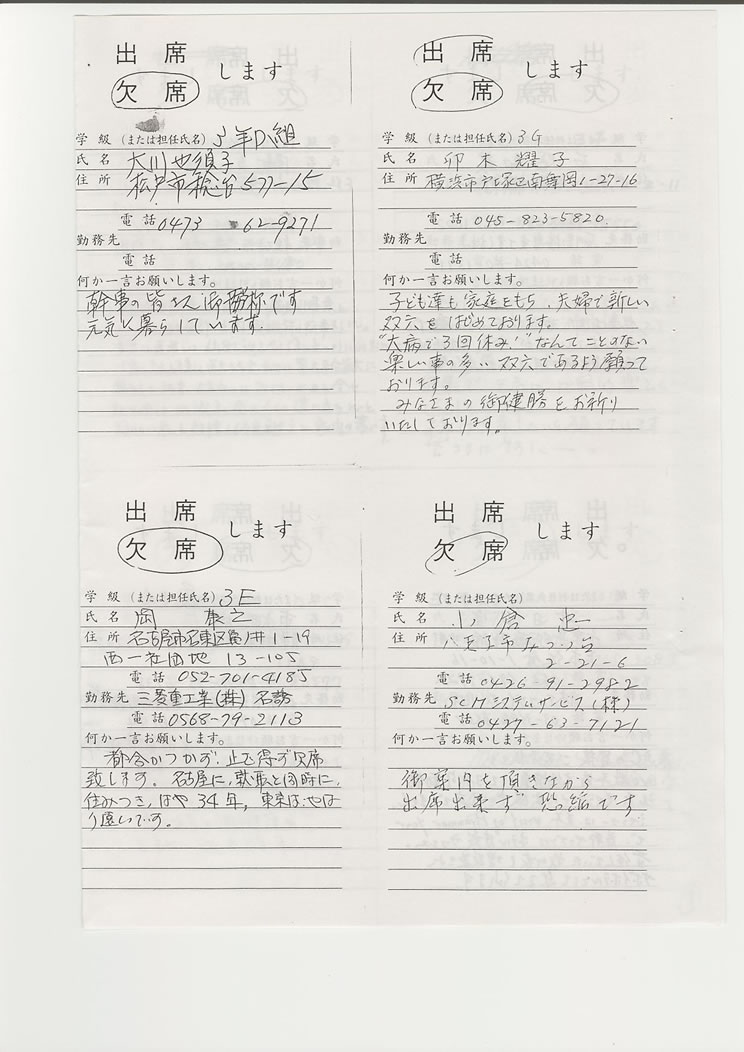 出席
欠席
します
学級 (または担任氏名) 3年D組
氏名 大川 世須子
住所 松戸市稔台577-15
電話 0473 62-9271
勤務先
電話
何か一言お願いします。
幹事の皆さん御苦労様です
元気に暮らしています.
出席
欠席
します
学級 (または担任氏名) 3G
氏名 卯木 耀子
住所 横浜市戸塚区南舞岡1-27-16
電話 045-823-5820.
勤務先
電話
何か一言お願いします。
子ども達も家庭をもち、夫婦で新しい
双六をはじめております。
"大病で3回休み!"なんてことのない
楽しい事の多い双六であるよう願って
おります。
みなさまの御健勝をお祈り
いたしております。
出席
欠席
します
学級 (または担任氏名) 3E
氏名 岡 泰之
住所 名古屋市名東区亀ノ井1-19
西一社団地 13-105
電話 052-701-4185
勤務先 三菱重工業(株) 名誘
電話 0568-79-2113
何か一言お願いします。
都合がつかず、止む得ず欠席
致します. 名古屋に, 就職と同時に,
住みつき, はや34年, 東京は, やは
り遠いです。
出席
欠席
します
学級 (または担任氏名)
氏名 小倉 忠一
住所 八王子市みつい台
2-21-6
電話 0426-91-2982
勤務先 SCMシステムサービス(株)
電話 0427-63-7121
何か一言お願いします。
御案内を頂きながら
出席出来ず 恐縮です